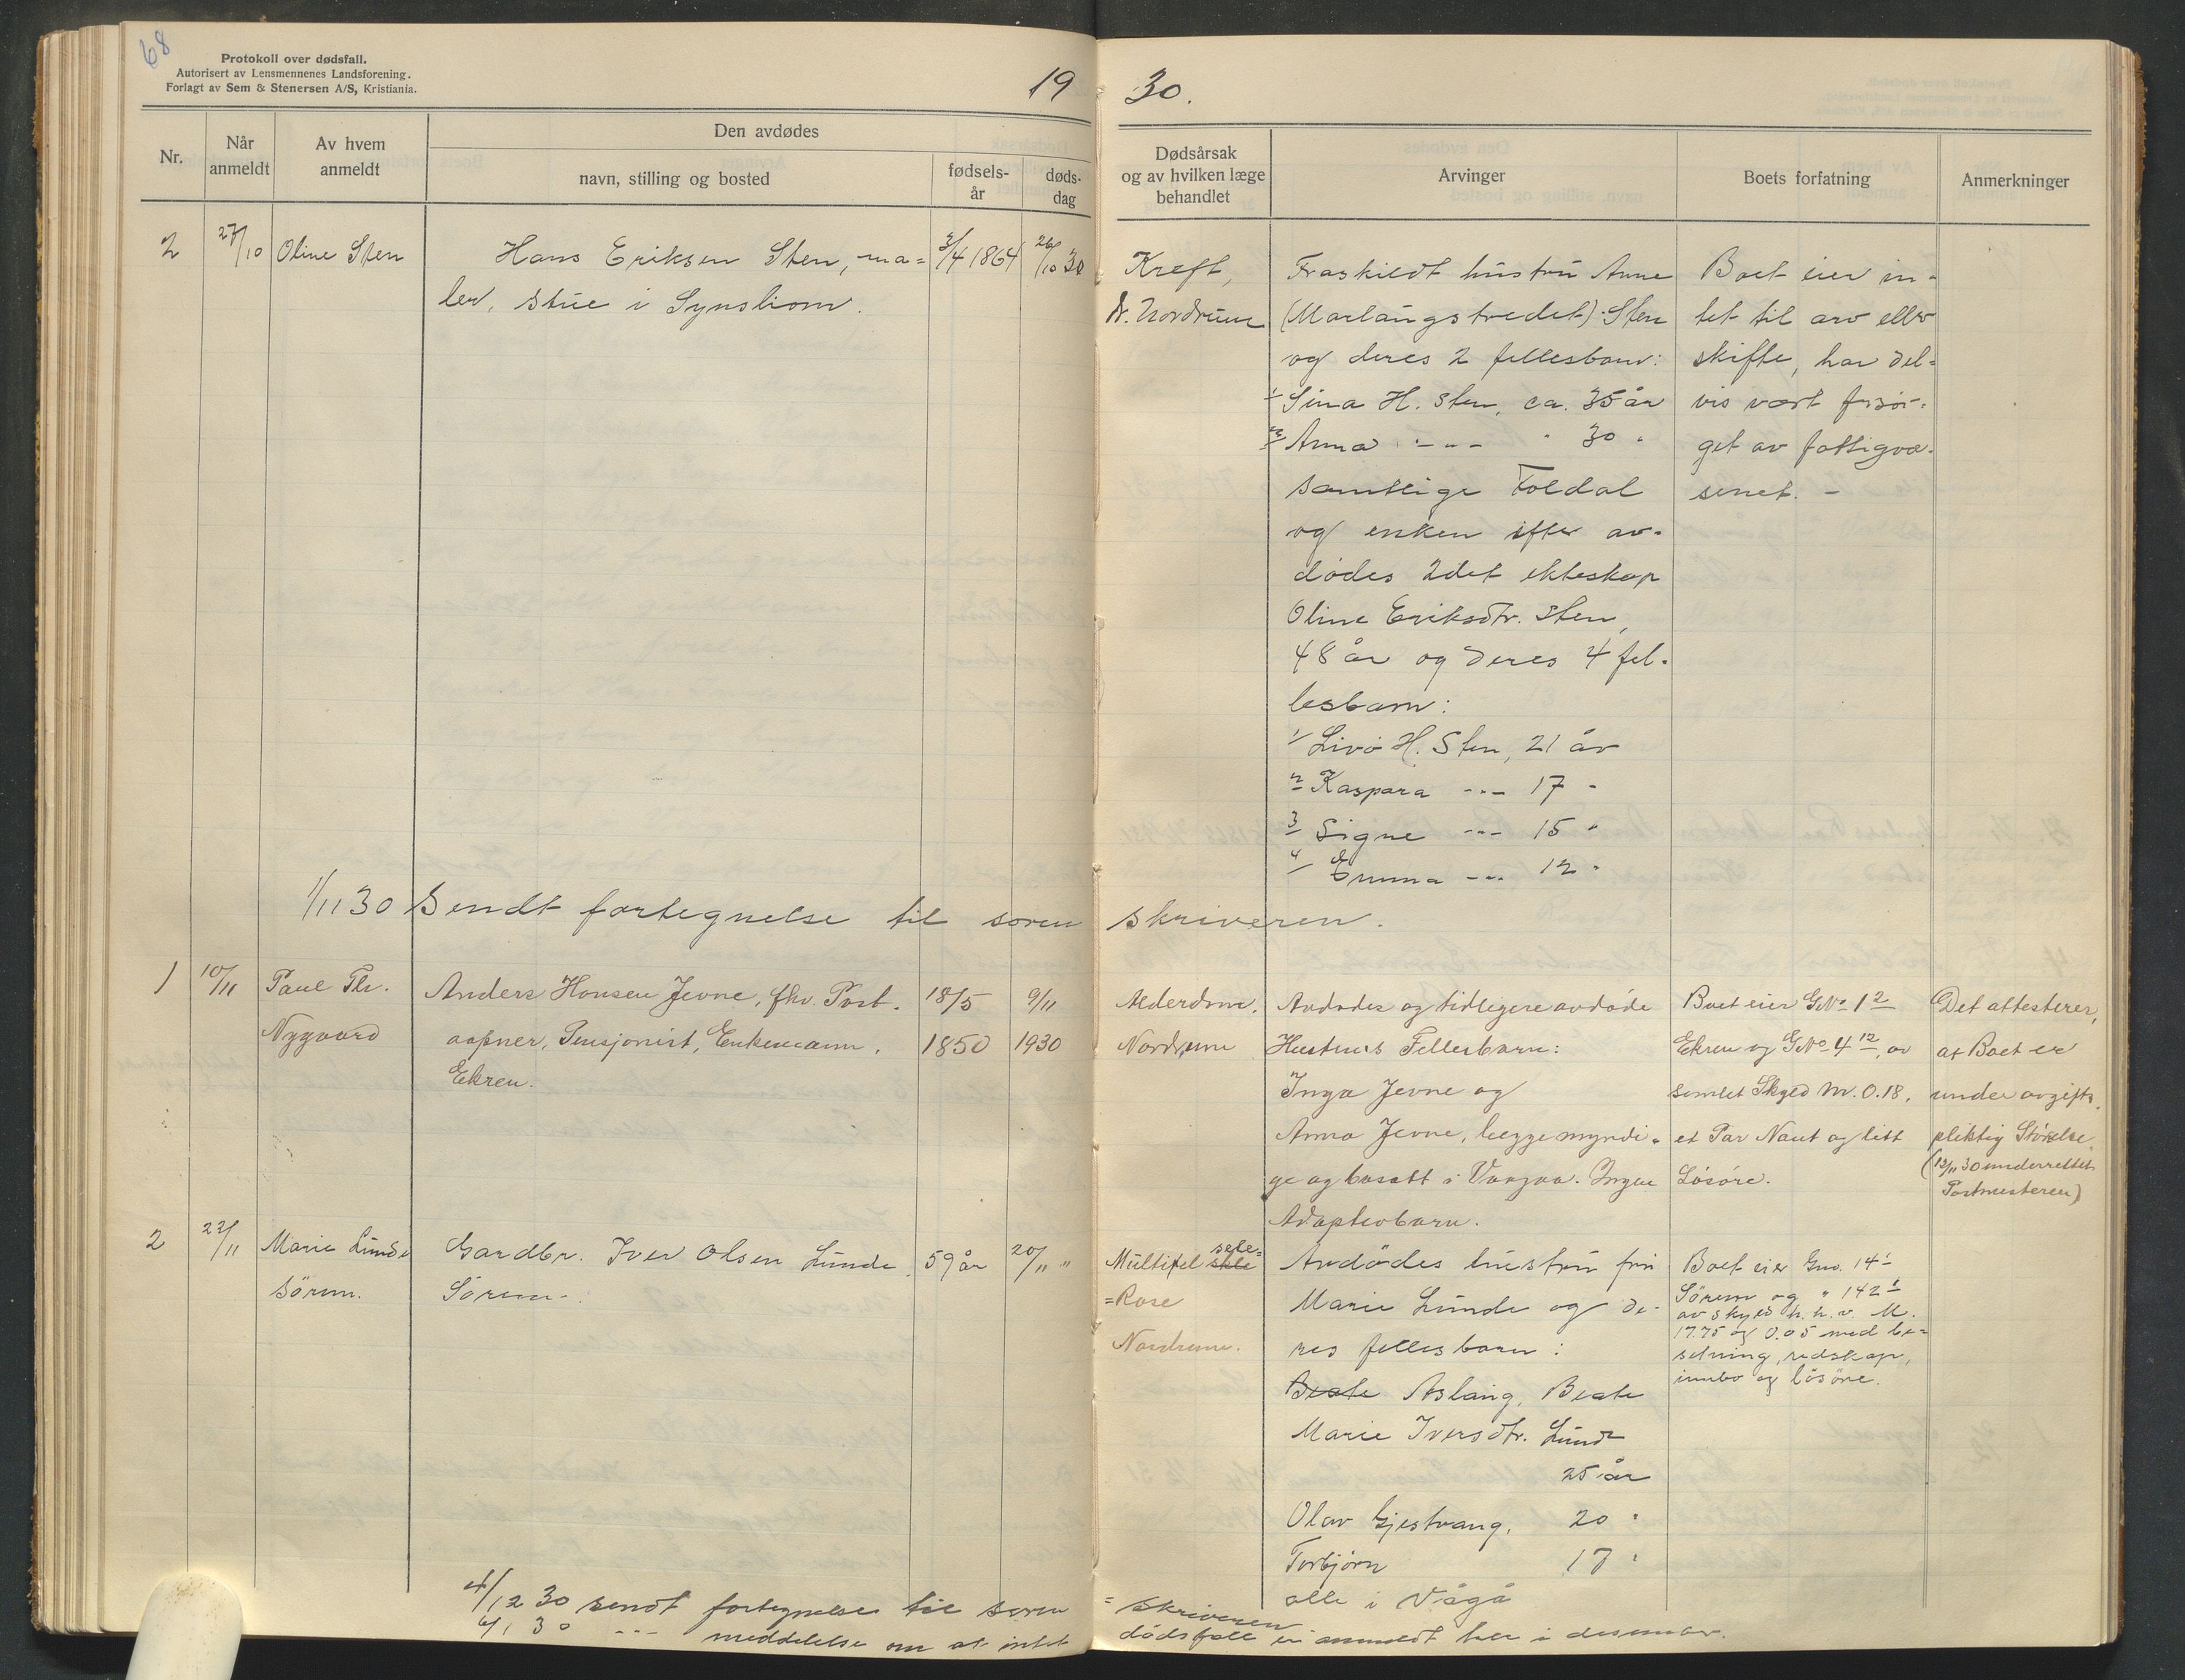 68
Protokoll over dødsfall.
Autorisert av Lensmennenes Landsforening.
Forlagt av Sem & Stenersen A/S, Kristiania.
19 30.
Nr.
Når anmeldt
Av hvem anmeldt
Den avdødes
navn, stilling og bosted
fødsels-år
døds-dag
Dødsårsak
og av hvilken læge
behandlet
Arvinger
Boets forfatning
Anmerkninger
2
27/10
Oline Sten
Hans Eriksen Sten, ma=
ler, stue i Synsliom.
3/4 1864
26/10 30
Kreft,
Dr. Nordrum
Fraskildt hustru Anne
(Marlaugstredet) Sten
og deres 2 fellesbarn:
1/ Sina H. Sten, ca. 35 år
2/ Anna -"- " 30 "
samtlige Foldal
og enken efter av-
dødes 2det ekteskap
Oline Eriksdtr. Sten,
48 år og deres 4 fel-
lesbarn:
1/ Livø H. Sten, 21 år
2/ Kaspara -"- 17 "
3/ Signe -"- 15 "
4/ Emma -"- 12 "
Boet eier in-
tet til arv eller
skifte, har del-
vis vært forsør-
get av fattigvæ-
senet. -
1/11 30 Sendt fortegnelse til soren skriveren.
1
10/11
Paul Th.
Nygaard
Anders Hansen Jevne, fhv. Post-
aapner, Pensjonist, Enkemann,
Ekren.
18/5
1850
9/11
1930
Alderdom.
Nordrum
Avdødes og tidligere avdøde
Hustrus Fellesbarn:
Inga Jevne og
Anna Jevne, begge myndi-
ge og bosatt i Vaagaa. Ingen
Adoptivbarn.
Boet eier G.No 1 2
Ekren og G.No 4 12, av
samlet Skyld M. 0.18,
et Par Naut og litt
Løsøre.
Det attesteres,
at Boet er
under avgifts-
pliktig Størrelse.
(12/11 30 underrettet
Postmesteren)
2
22/11
Marie Lunde
Sørum.
Gardbr. Iver Olsen Lunde
Sørum.
59 år
20/11 "
Multipel skle sele=
=Rose
Nordrum.
Avdødes hustru fru
Marie Lunde og de-
res fellesbarn:
Beate Aslaug, Beate
Marie Iversdtr. Lunde
25 år
Olav Gjestvang, 20 "
Torbjørn 17 "
alle i Vågå
Boet eier Gno. 14 1
Sørum og " 142 1
av skyld h.h.v. M.
17.75 og 0.05 med be-
setning, redskap,
innbo og løsøre.
4/12 30 sendt fortegnelse til soren = skriveren
4/1 3 -"- meddelelse om at intet dødsfall er anmeldt her i desember.